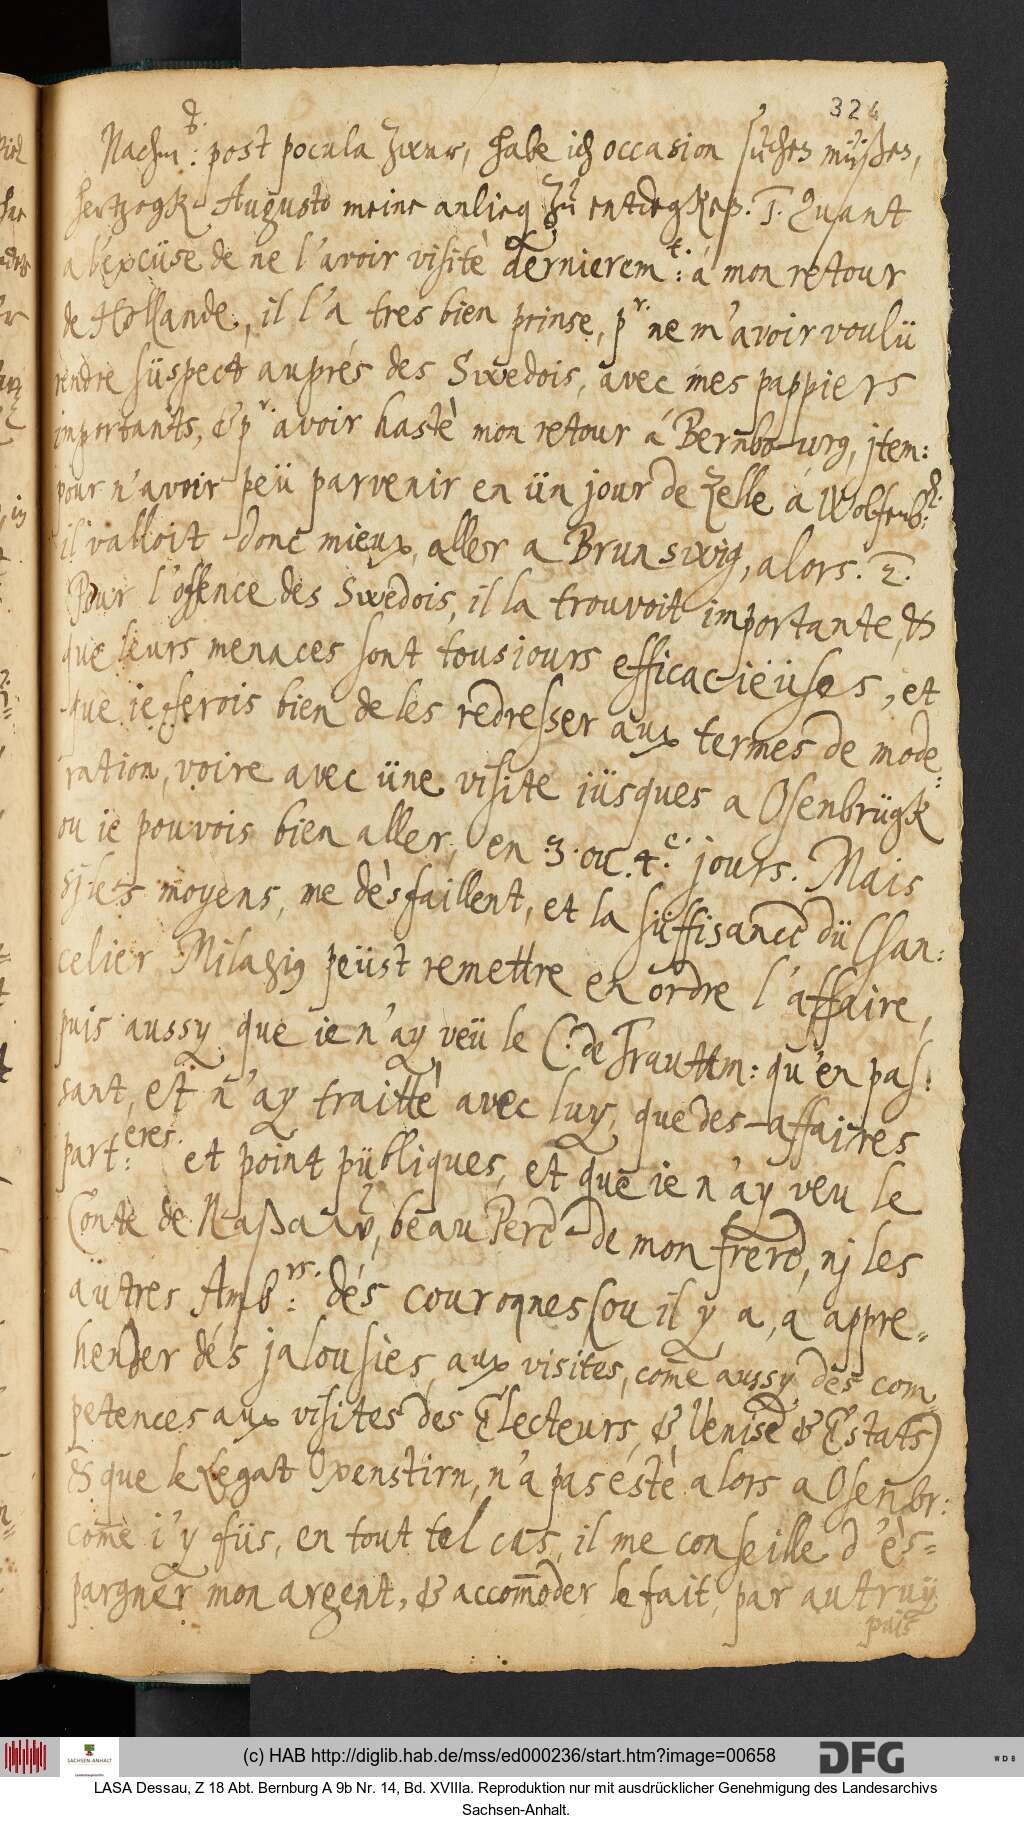 324
Nachm: post pocula zwar, habe ich occasion süchen müßen,
hertzogk Augusto meine anlieg zu entdegken. 1. Quant
a l'excüse de ne l'avoir visitè dernierem:t á mon retour
de Hollande, il l'a tres bien prinse, p.r ne m'avoir voulü
rendre süspect auprés des Swedois, avec mes pappiers
importants, & p.r avoir hastè mon retour á Bernbourg, jtem:
pour n'avoir peü parvenir en ün jour de Zelle á Wolfenb:
il valloit donc mieux, aller a Brunswig, alors. 2.
Pour l'offence des Swedois, il la trouvoit importante, &
que leurs menaces sont tousiours efficacieüses, et
que ie ferois bien de les redresser aux termes de mode¬
ration, voire avec üne visite iüsques a Osenbrügk
ou ie pouvois bien aller, en 3. ou 4. jours. Mais
sj les moyens, me dèsfaillent, et la süffisance dü Chan:
celier Milagig peüst remettre en ordre l'affaire,
puis aussy que ie n'ay veü le C. de Trauttm: qu'en pas:
sant, et n'ay traittè avec luy, que des affaires
part:eres. et point püliques, et que ie n'ay veu le
Conte de Naßaw, beau Pere de mon frere, nj les
autres Amb:rs. dés couronnes (ou il y a, a appre¬
hender dés jalousies, aux visites, come aussy des com
petences aux visites des Electeurs, & Venise & Estats)
& que le Legat Oxenstirn, n'a pas estè alors a Osenbr:
come i'y füs, en tout tel cas, il me conseille d'ès¬
pargner mon argent, & accommoder le fait, par autruy
puis
(c) HAB http://diglib.hab.de/mss/ed000236/start.htm?image=00658
SACHSEN-ANHALT
DFG
WDB
LASA Dessau, Z 18 Abt. Bernburg A 9b Nr. 14, Bd. XVIIIa. Reproduktion nur mit ausdrücklicher Genehmigung des Landesarchivs
Sachsen-Anhalt.